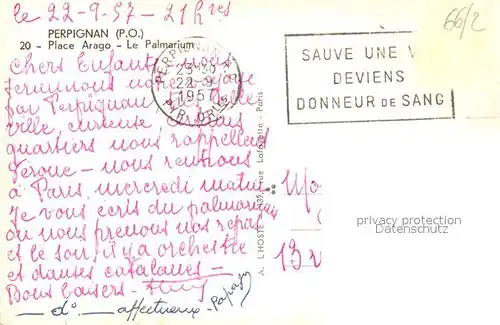 le 22-9-57 - 21h res
66/2
PERPIGNAN (P.O.)
20 - Place Arago - Le Palmarium
Chers Enfants nous
terminons notre voyage
par Perpignan belle
ville curieuse
quartiers nous rappellent
nous rentrons
à Paris mercredi matin
Je vous écris du palmarium
où nous prenons nos repas
et le soir il y a orchestre
et danses catalanes -
Bons baisers -
d° - affectueux - Papagy
PERPIGNAN R.P.
22-9
1957
PYR. ORLES
SAUVE UNE V
DEVIENS
DONNEUR DE SANG
A. L'HOSTE - 139, rue Lafayette - Paris
protection privée
Datenschutz